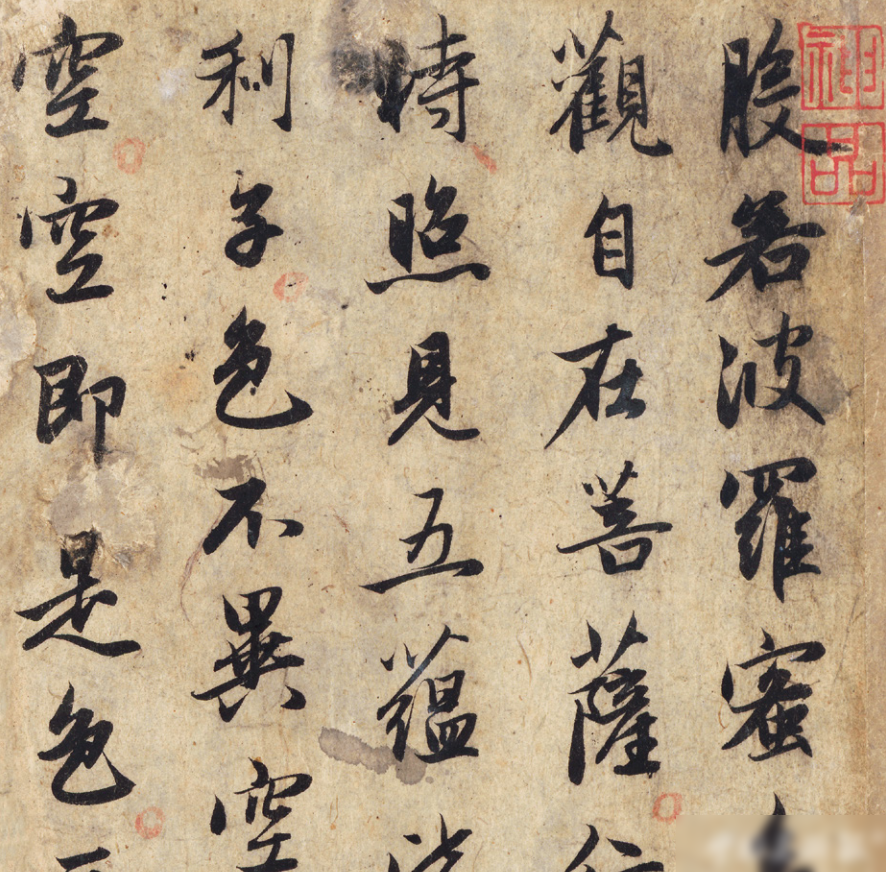 般若波羅蜜
觀自在菩薩行
時照見五蘊皆
利子色不異空
空空即是色
神品